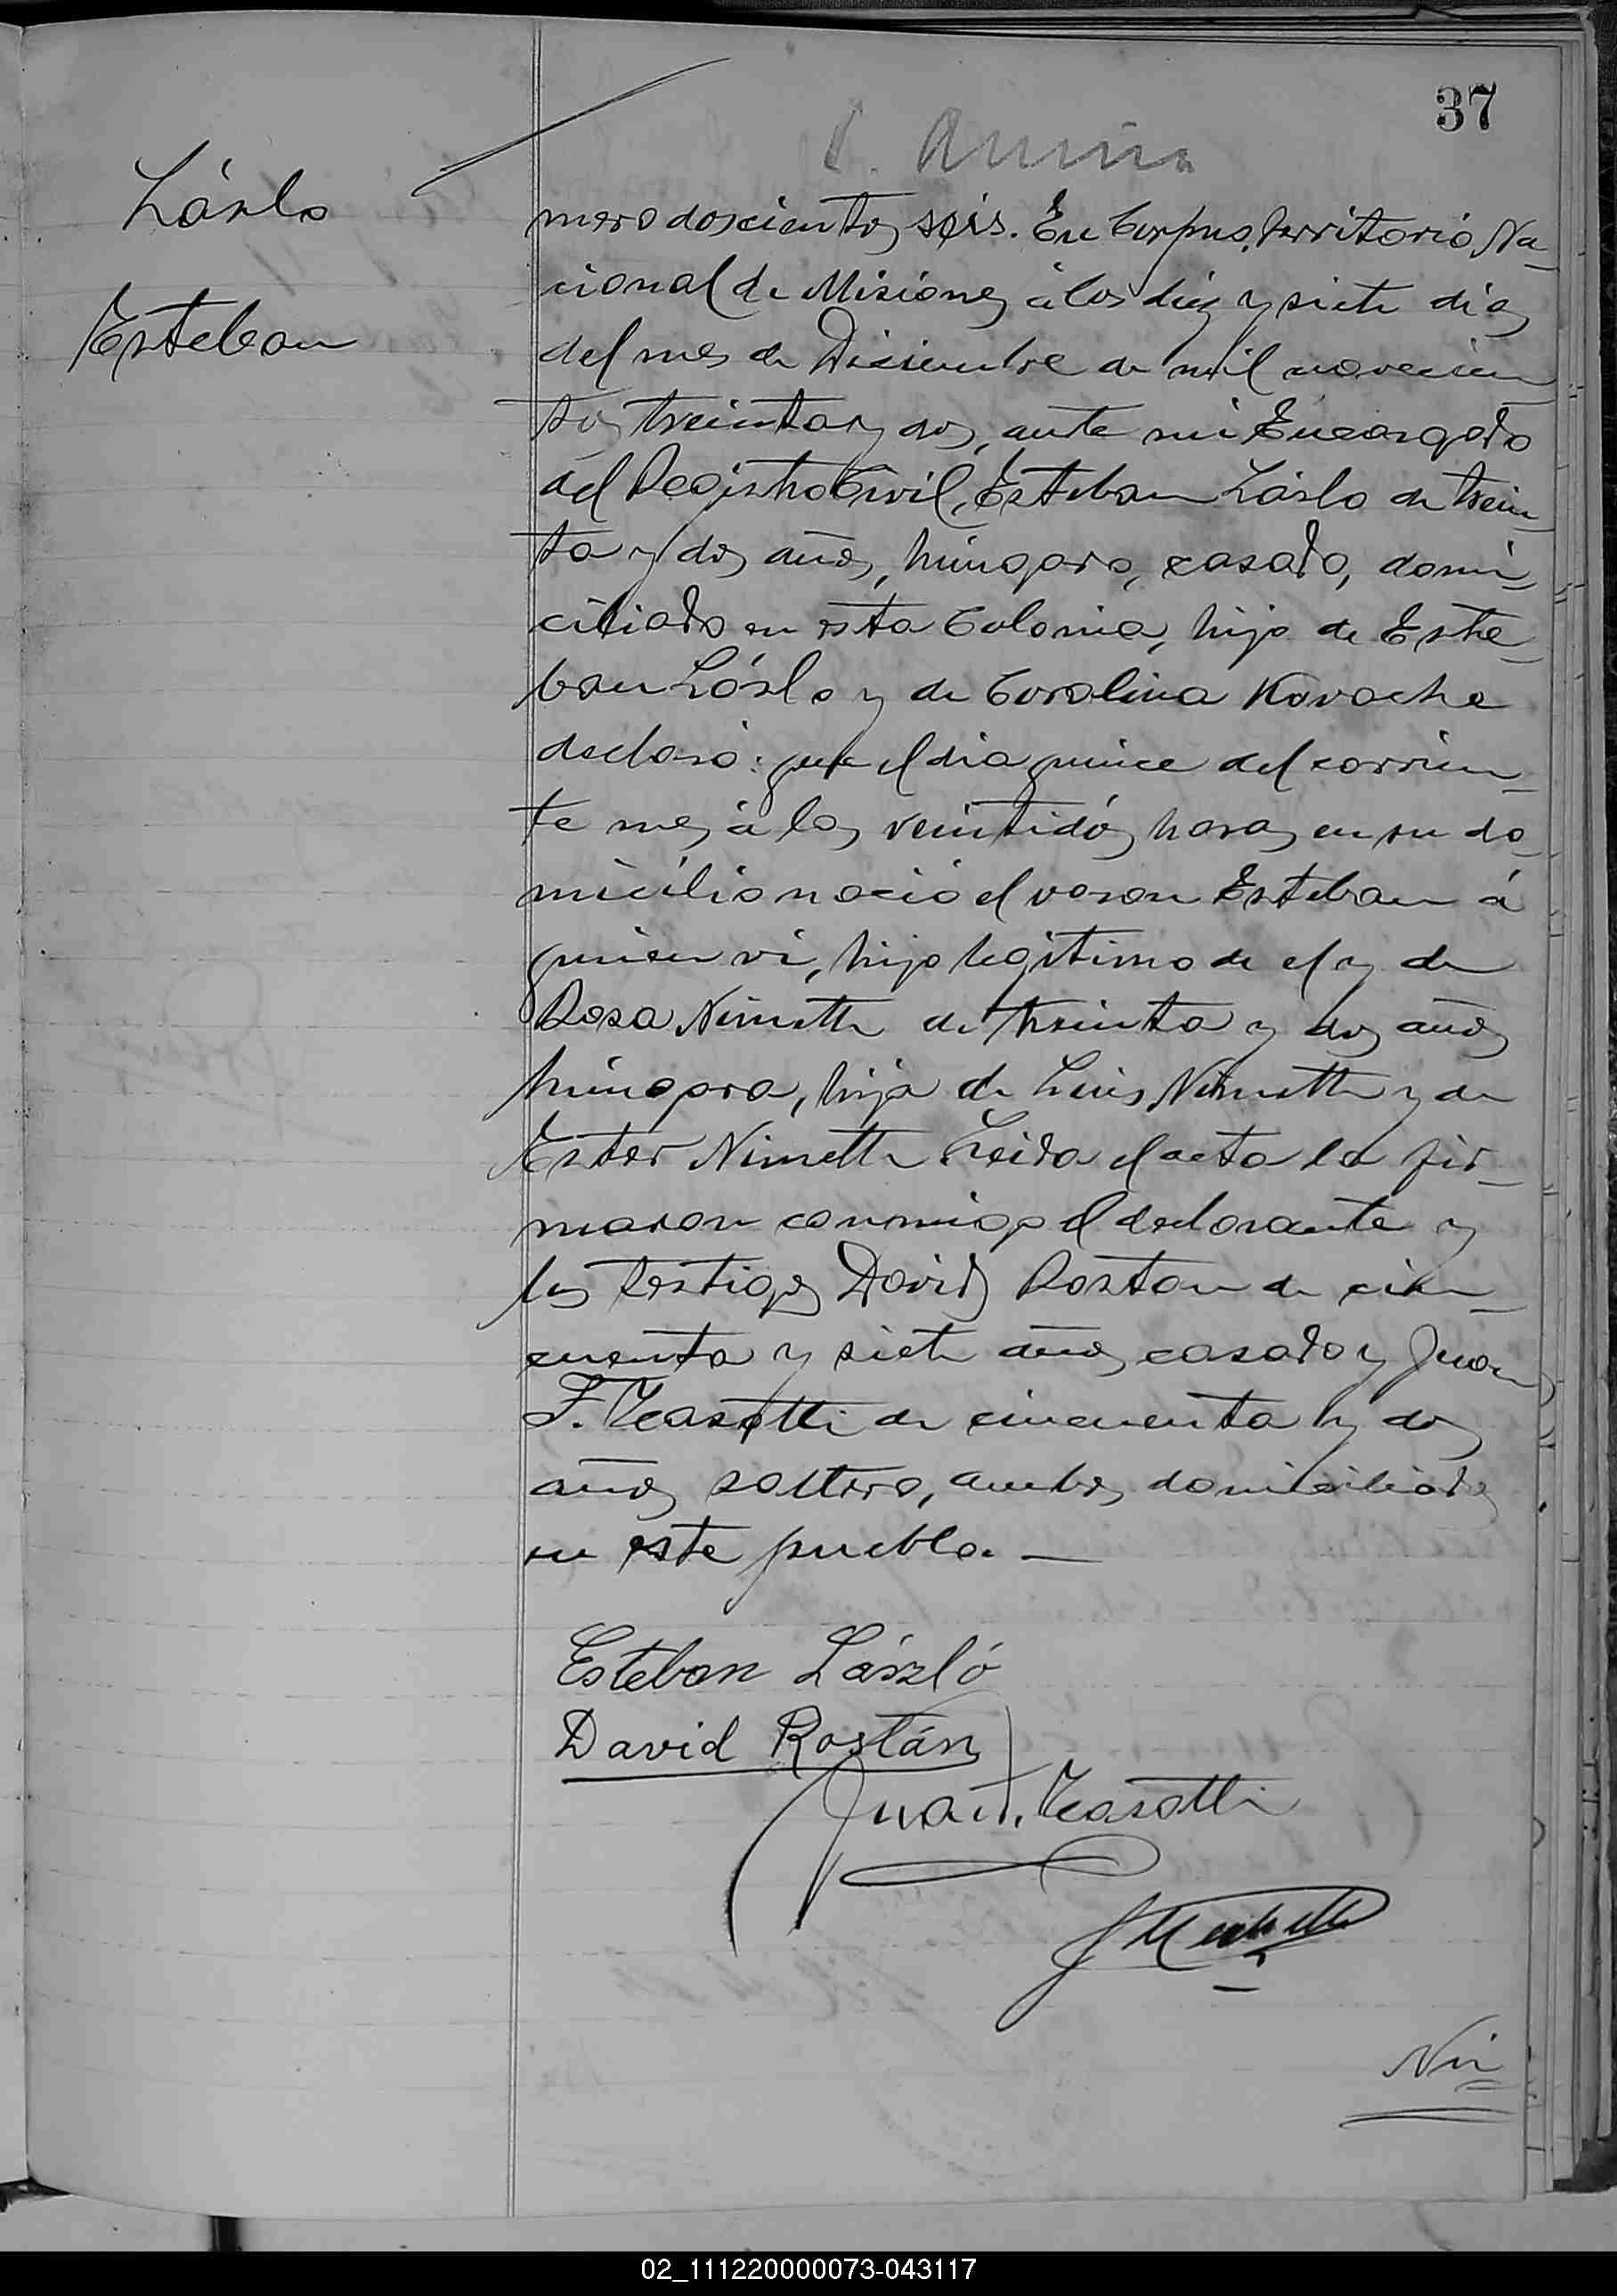 37
Láslo
Esteban
mero doscientos seis. En Corpus, Territorio Na-
cional de Misiones á los diez y siete dias
del mes de Diciembre de mil novecien-
tos treinta y dos, ante mi Encargado
del Registro Civil, Esteban Láslo de trein-
ta y dos años, húngaro, casado, domi-
ciliado en esta Colonia, hijo de Este-
ban Láslo y de Carolina Kovache
declaró: que el dia quince del corrien-
te mes á las veintidós horas en su do-
micilio nació el varon Esteban á
quien vi, hijo legitimo de el y de
Rosa Nimeth de treinta y dos años
húngara, hija de Luis Nimeth y de
Ester Nimeth. Leida el acta la fir-
maron conmigo el declarante y
los testigos David Rostan de cin-
cuenta y siete años, casado y Juan
F. Teasotti de cincuenta y dos
años soltero, ambos domiciliados
en este pueblo.—
Esteban László
David Rostán
Juan F. Teasotti
Nú
02_111220000073-043117